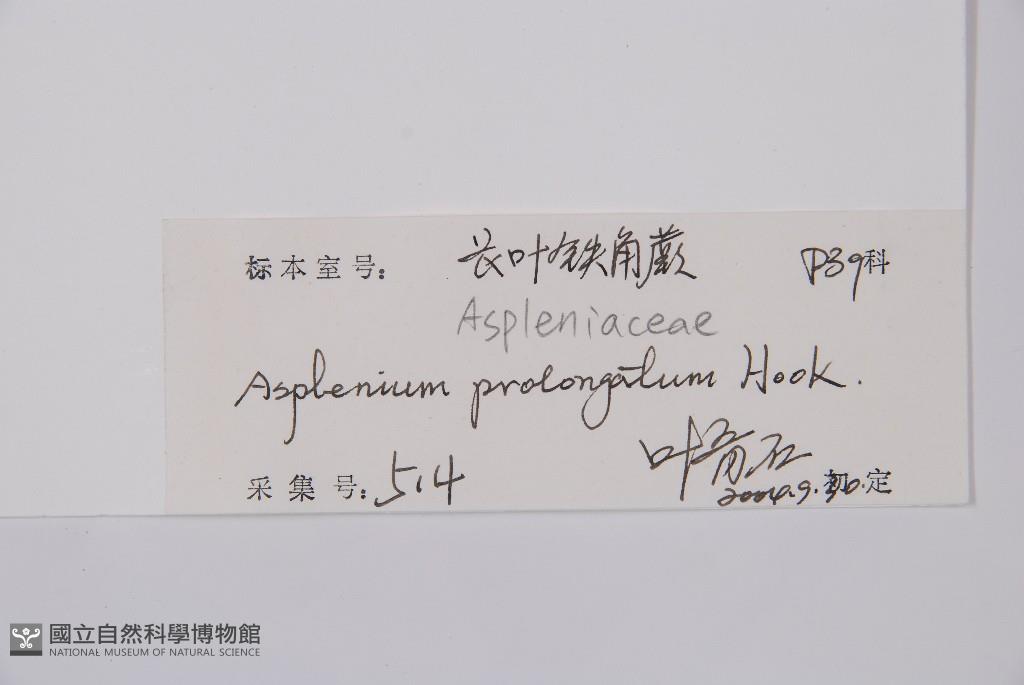 标本室号: 长叶铁角蕨 P39科
Aspleniaceae
Asplenium prolongatum Hook.
采集号: 514 叶
2004.9. 初定
國立自然科學博物館
NATIONAL MUSEUM OF NATURAL SCIENCE